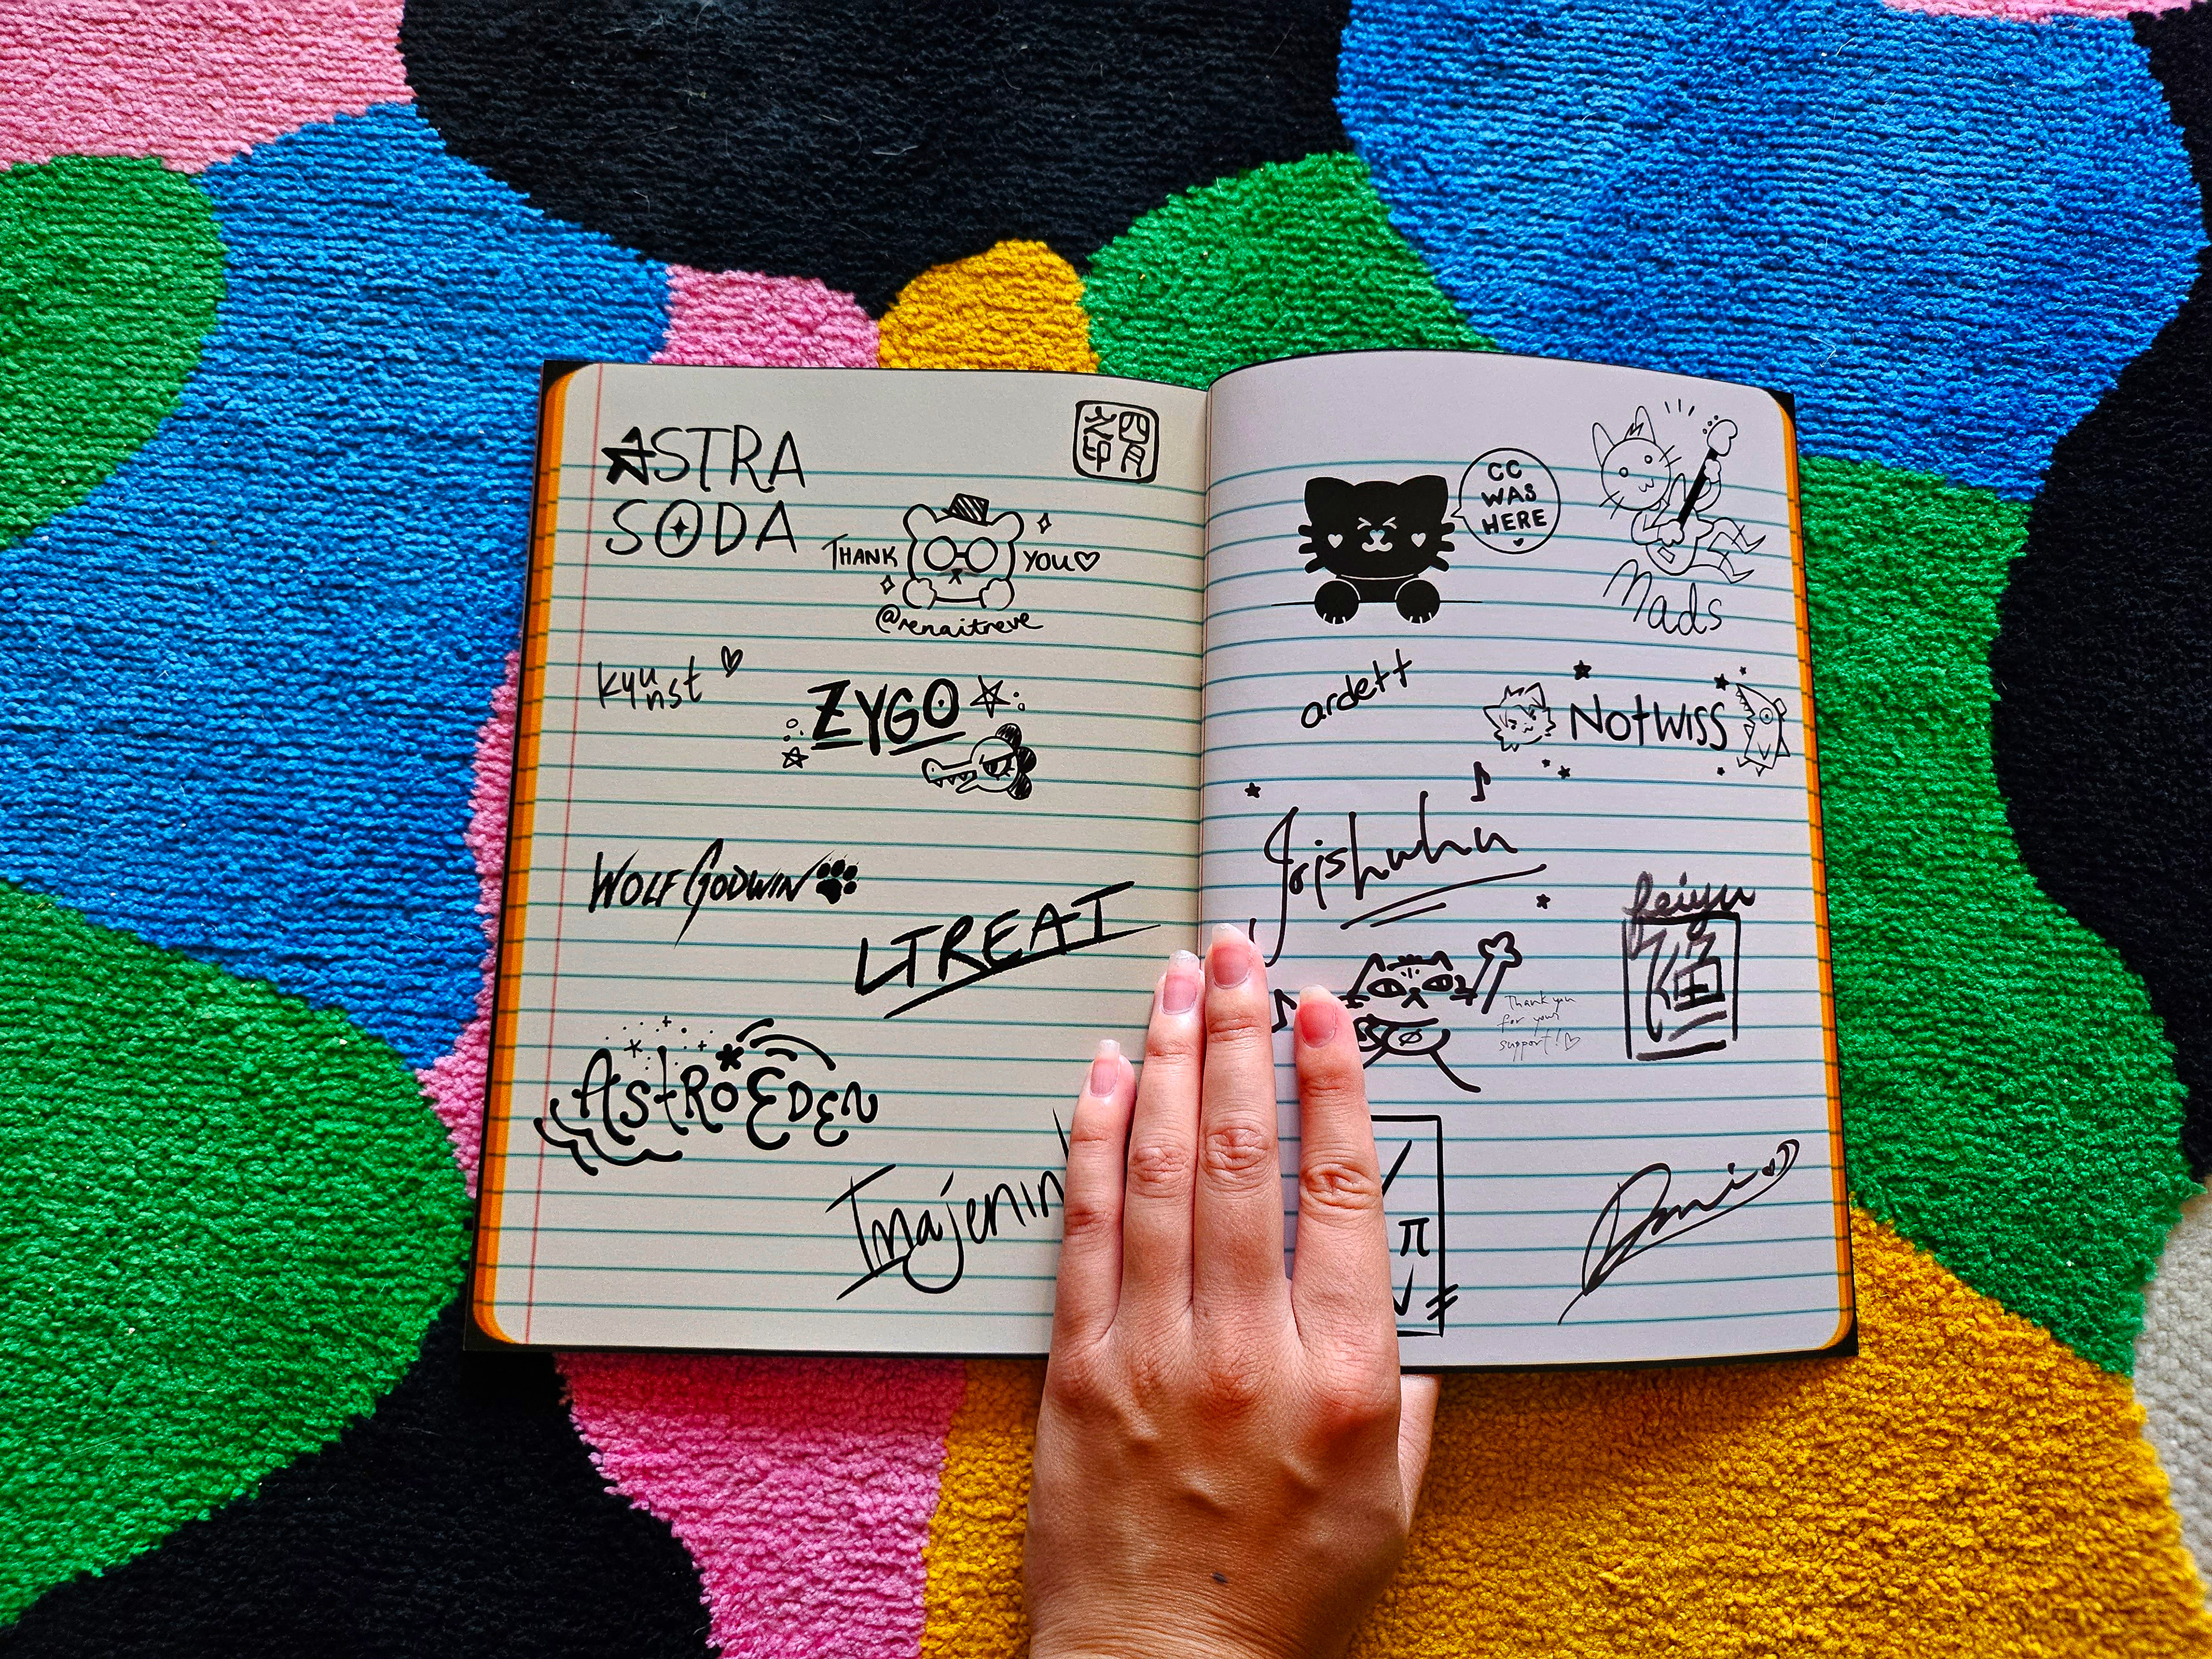 ASTRA
SODA
四月
之印
THANK YOU
@renaitreve
kyunst
ZYGO
WOLF GODWIN
LTREAT
ASTROEDEN
CC
WAS
HERE
Mads
ardett
NOTWISS
Jorishuhu
Thank you
for your
support!
π